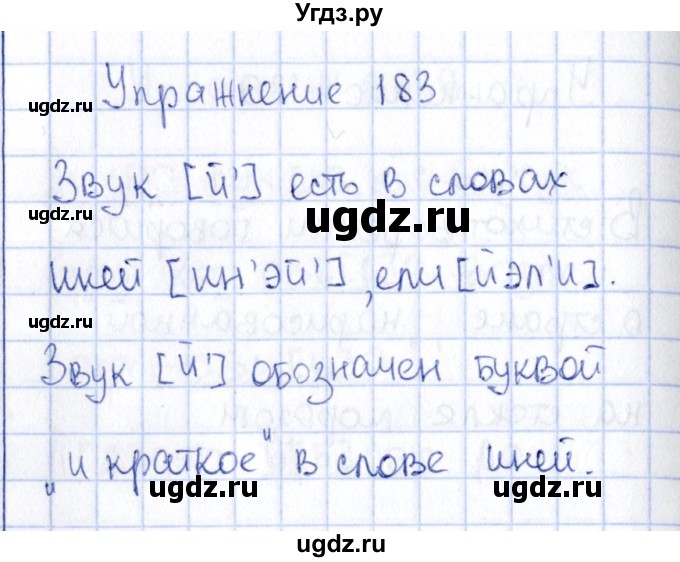 Угдз.ру
Упражнение 183
ugdz.ru ugdz.ru
Звук [й'] есть в словах
ugdz.ru ugdz.ru
иней [ин'эй'], ели [йэл'и].
ugdz.ru ugdz.ru
Звук [й'] обозначен буквой
„и краткое" в слове иней.
ugdz.ru ugdz.ru
ugdz.ru